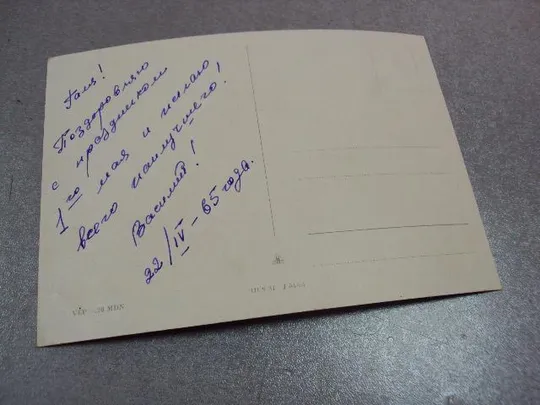 Галя!
Поздоровляю
с праздником
1го мая и желаю
всего наилучшего!
Василий!
22/IV-65 года.